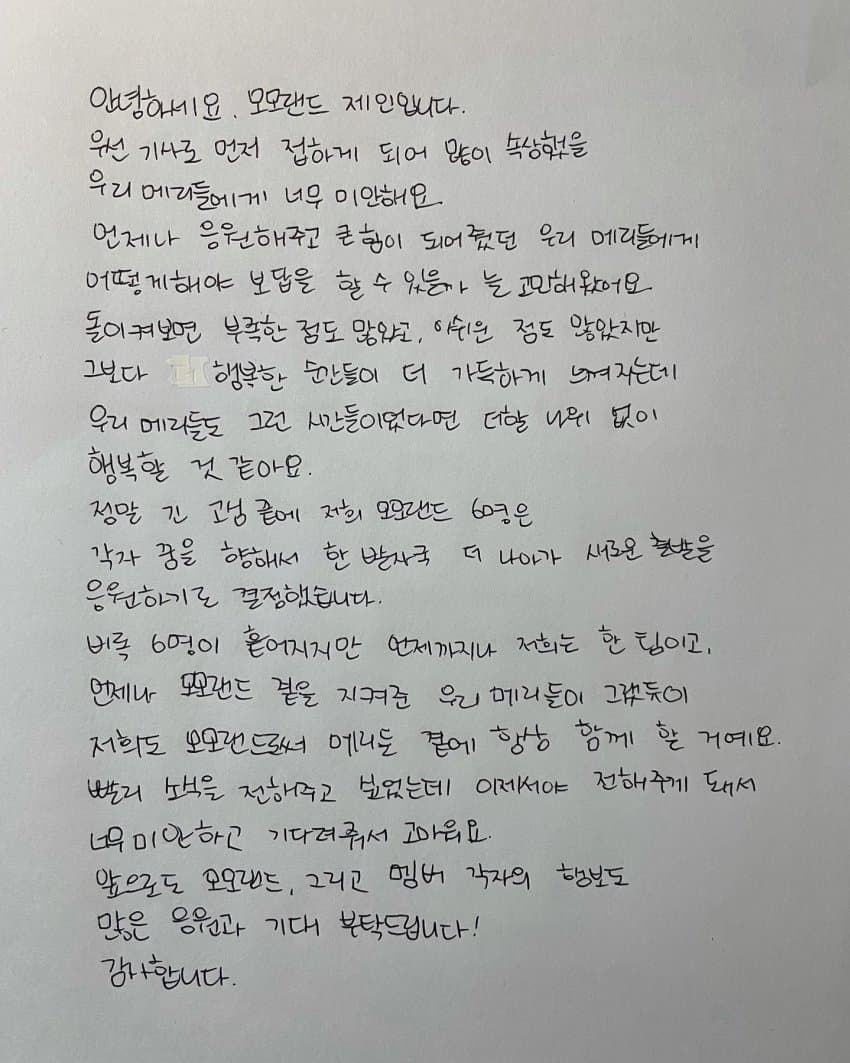 안녕하세요, 모모랜드 제인입니다.
우선 기사로 먼저 접하게 되어 많이 속상했을
우리 메리들에게 너무 미안해요.
언제나 응원해주고 큰 힘이 되어줬던 우리 메리들에게
어떻게해야 보답을 할 수 있을까 늘 고민해왔어요
돌이켜보면 부족한 점도 많았고, 아쉬운 점도 많았지만
그보다 행복한 순간들이 더 가득하게 느껴지는데
우리 메리들도 그런 시간들이었다면 더할 나위 없이
행복할 것 같아요.
정말 긴 고심 끝에 저희 모모랜드 6명은
각자 꿈을 향해서 한 발자국 더 나아가 새로운 출발을
응원하기로 결정했습니다.
비록 6명이 흩어지지만 언제까지나 저희는 한 팀이고,
언제나 모모랜드 곁을 지켜준 우리 메리들이 그랬듯이
저희도 모모랜드로써 메리들 곁에 항상 함께 할 거예요.
빨리 소식을 전해주고 싶었는데 이제서야 전해주게 돼서
너무 미안하고 기다려줘서 고마워요.
앞으로도 모모랜드, 그리고 멤버 각자의 행보도
많은 응원과 기대 부탁드립니다!
감사합니다.